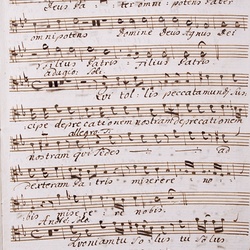 Deus Pa - ter omnipotens Pater
omnipotens Domine Deus Agnus Dei
Filius Patris Filius Patris
adagio Soli
Qui tol - lis peccata mundi Sus
cipe deprecationem nostram deprecationem
allegro
nostram qui Sedes ad
dexteram Patris miserere no
bis miserere nobis
Andte Solo
Quoniam tu Solus tu Solus